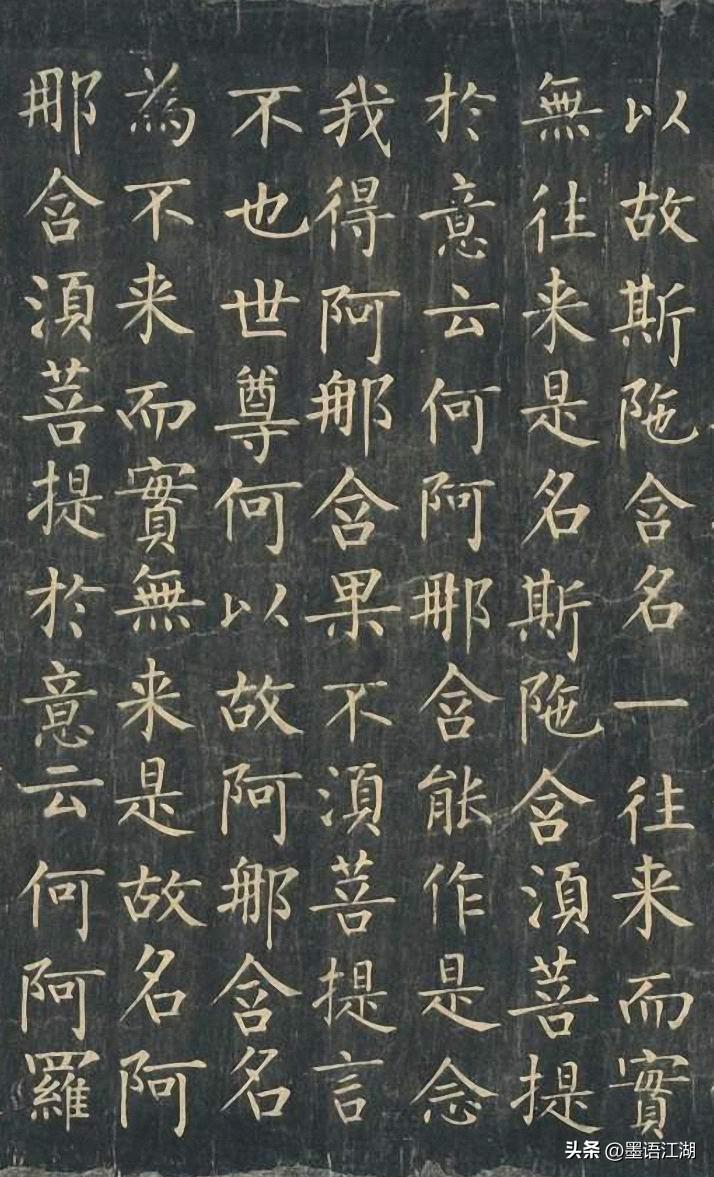 以故斯陁含名一往来而實
無往来是名斯陁含須菩提
於意云何阿那含能作是念
我得阿那含果不須菩提言
不也世尊何以故阿那含名
為不来而實無来是故名阿
那含須菩提於意云何阿羅
头条 @墨语江湖